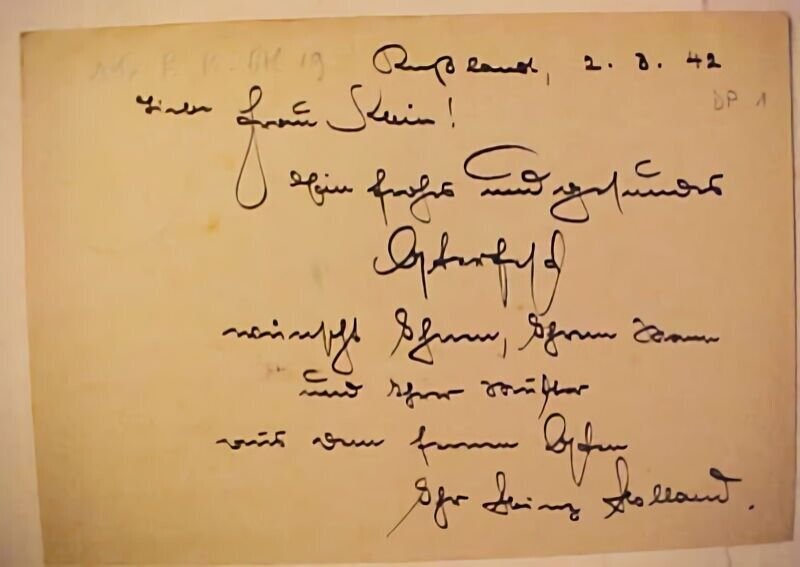 Rußland, 2. 3. 42
DP 1
Liebe Frau Klein!
Ein frohes und gesundes
Osterfest
wünscht Ihnen, Ihrem Mann
und Ihrer Mutter
aus dem fernen Osten
Ihr Heinz Holland.